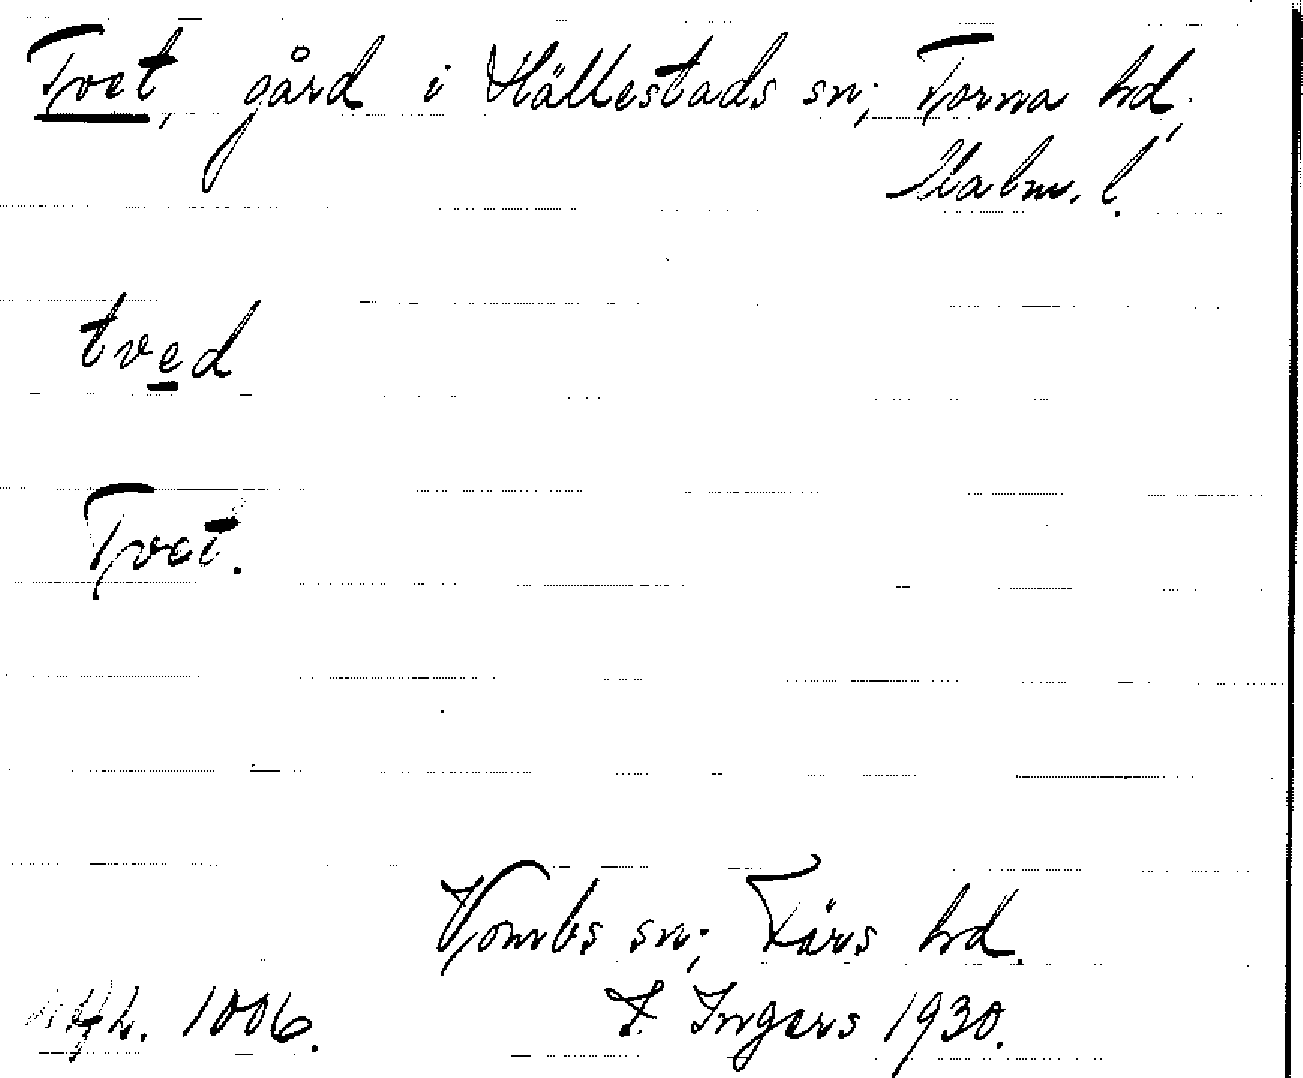 Tvet, gård i Hällestads sn; Torna hd,
Malm. l.
tved
Tvet.
Vombs sn; Färs hd.
1006. I. Ingers 1930.